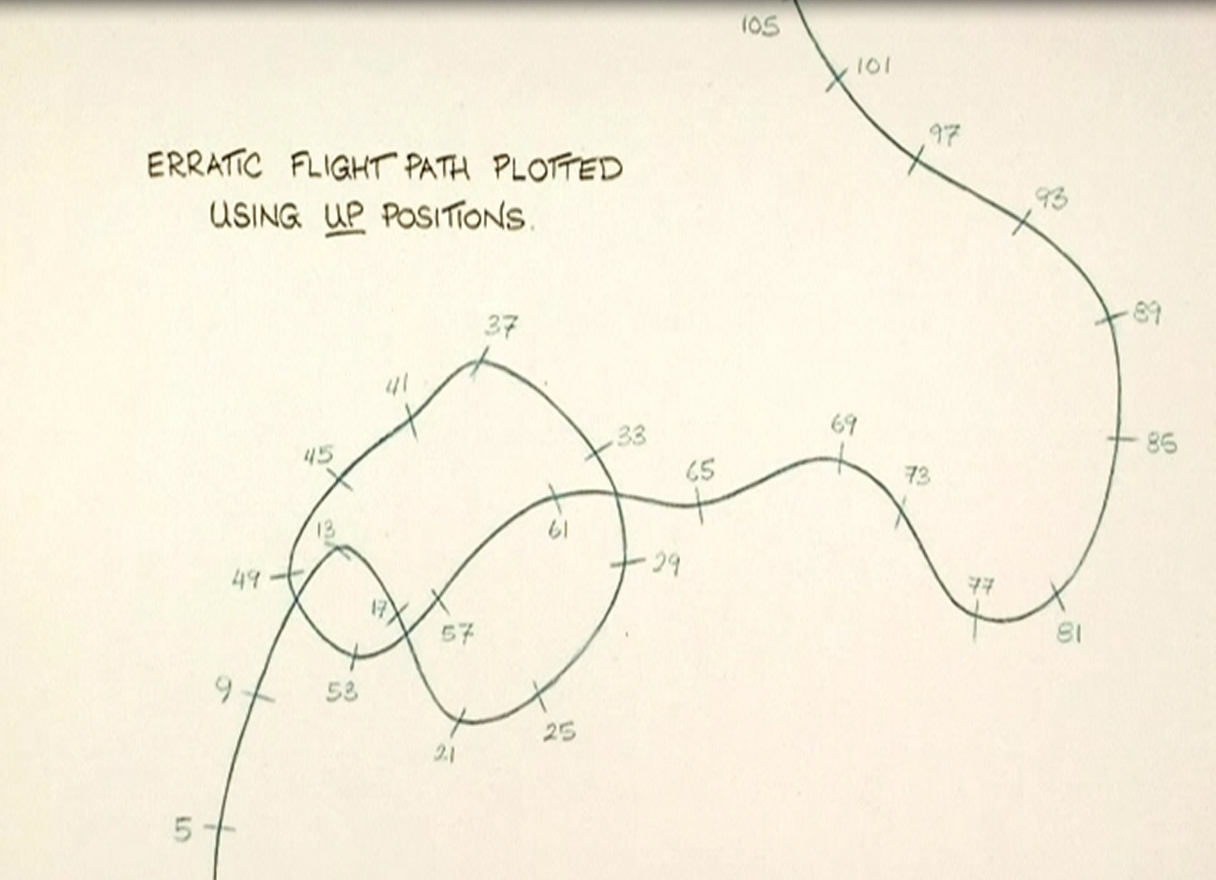 105
101
97
93
ERRATIC FLIGHT PATH PLOTTED
USING UP POSITIONS.
89
37
41
33
69
85
45
65
73
13
61
49
29
77
17
57
81
9
53
25
21
5